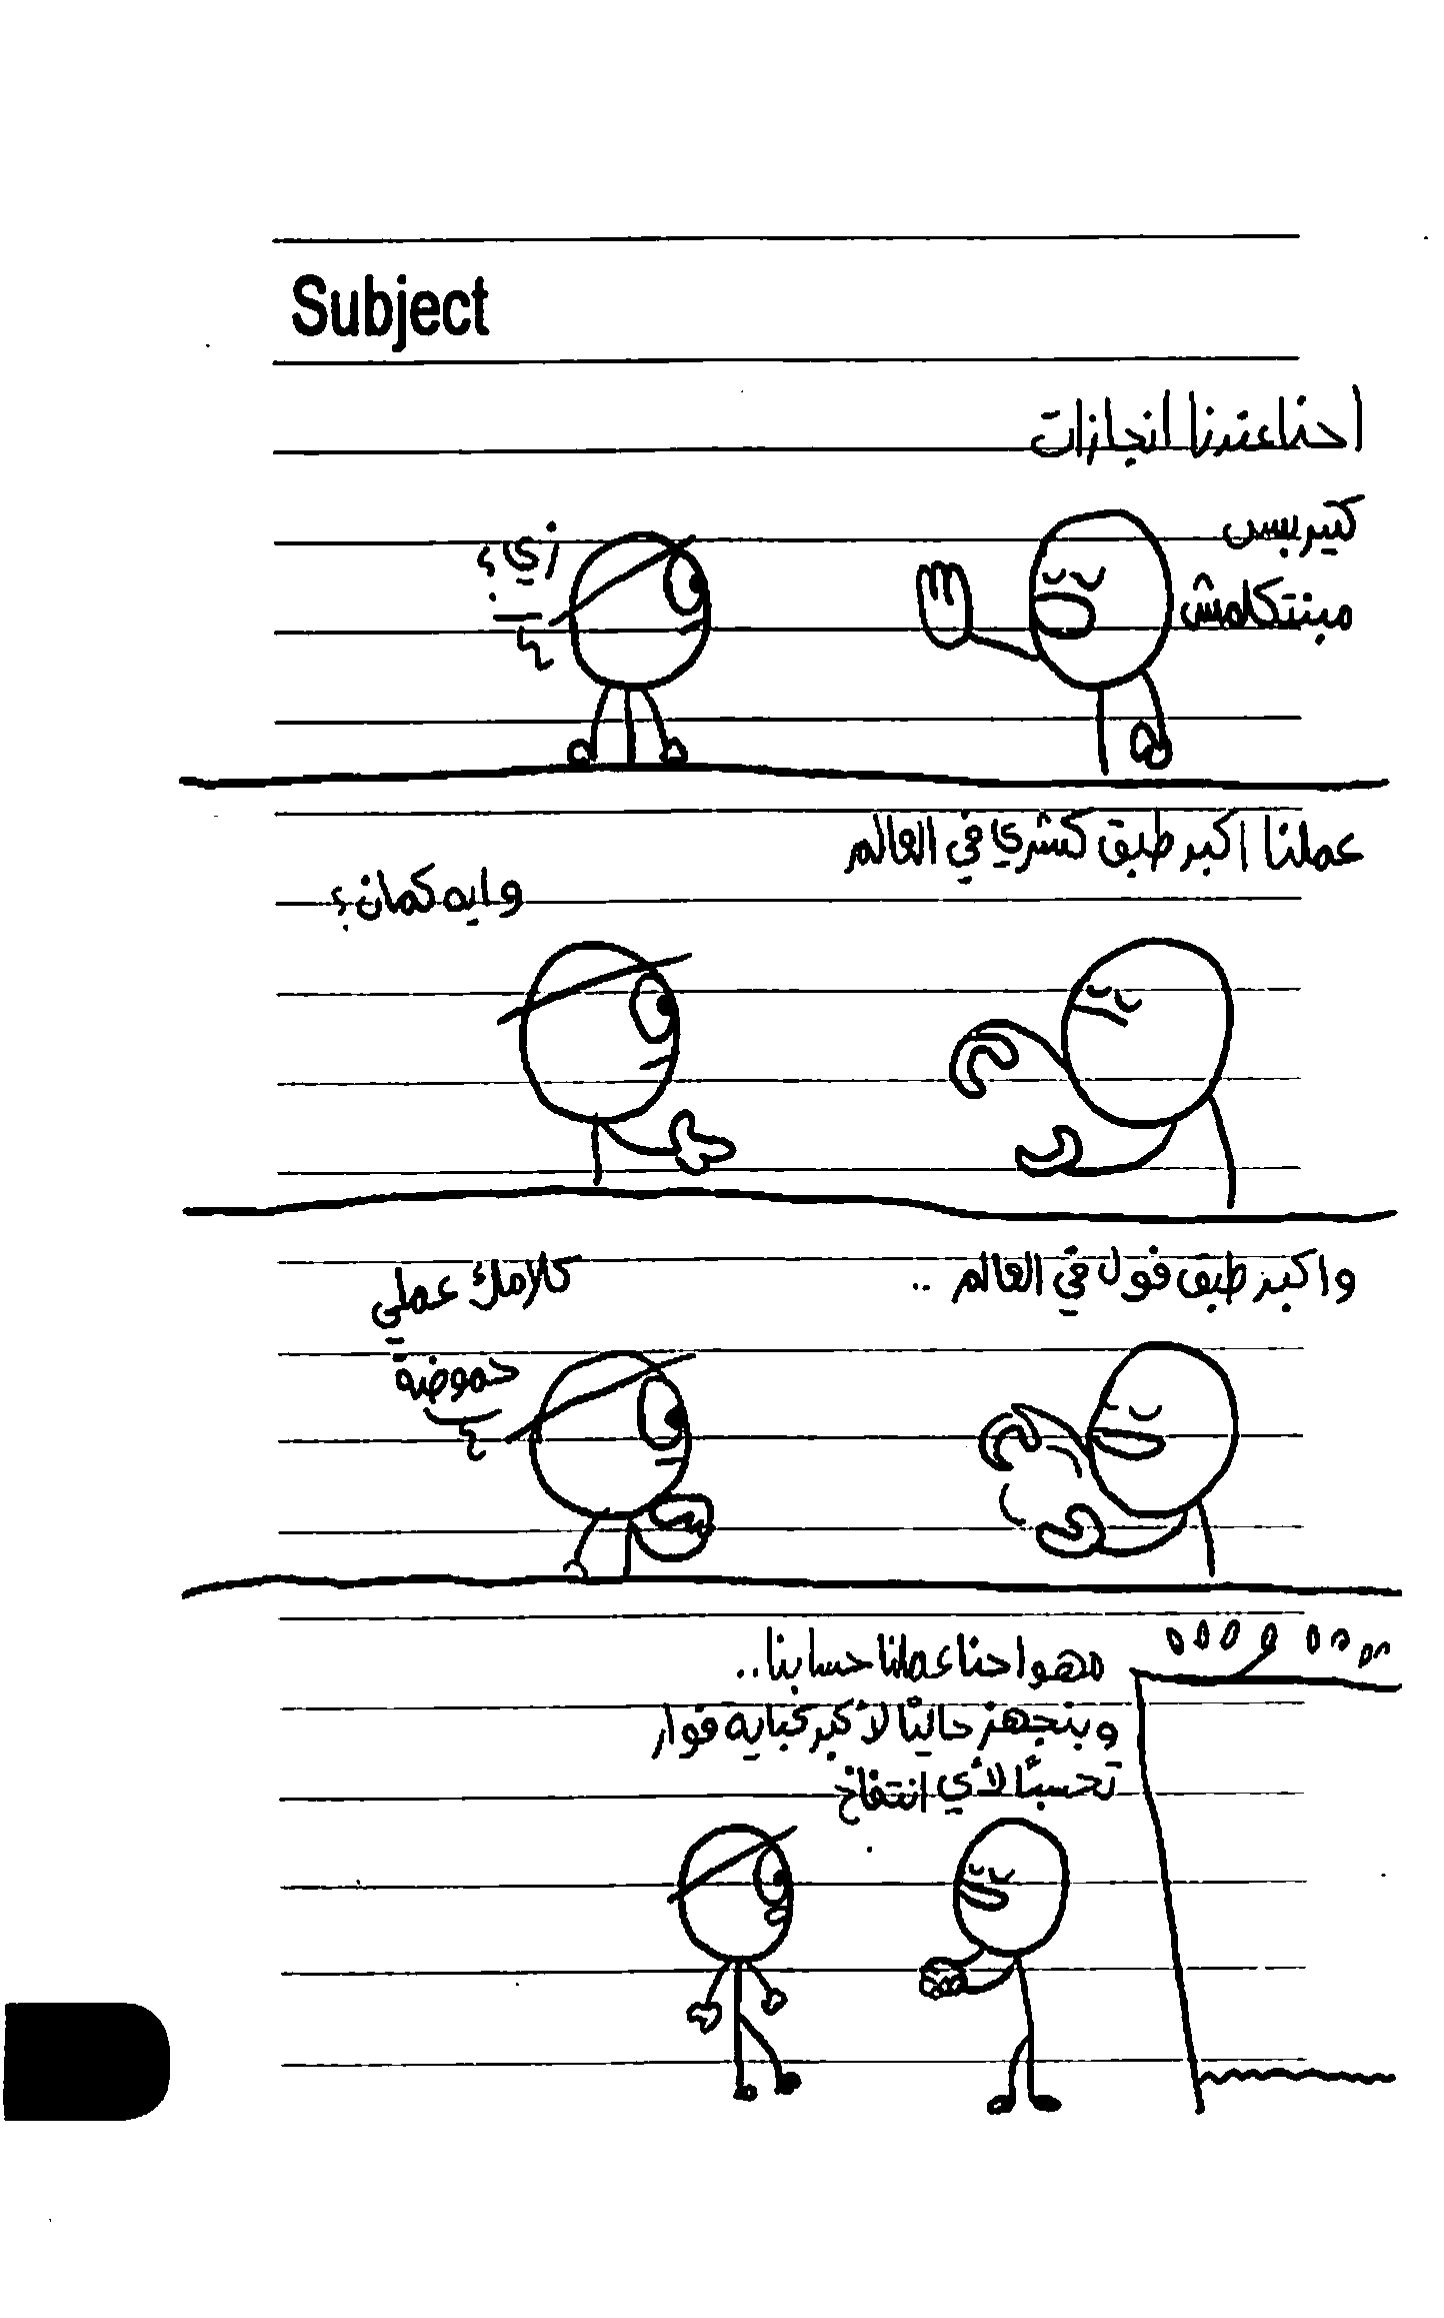 Subject
احنا عندنا انجازات
كتير بس
مبنتكلمش
زي؟
عملنا اكبر طبق كشري في العالم
وايه كمان؟
واكبر طبق فول في العالم ..
كلامك عملي
حموضة
مهو احنا عملنا حسابنا..
وبنجهز حاليًا لأكبر كباية فوار
تحسبًا لأي انتفاخ